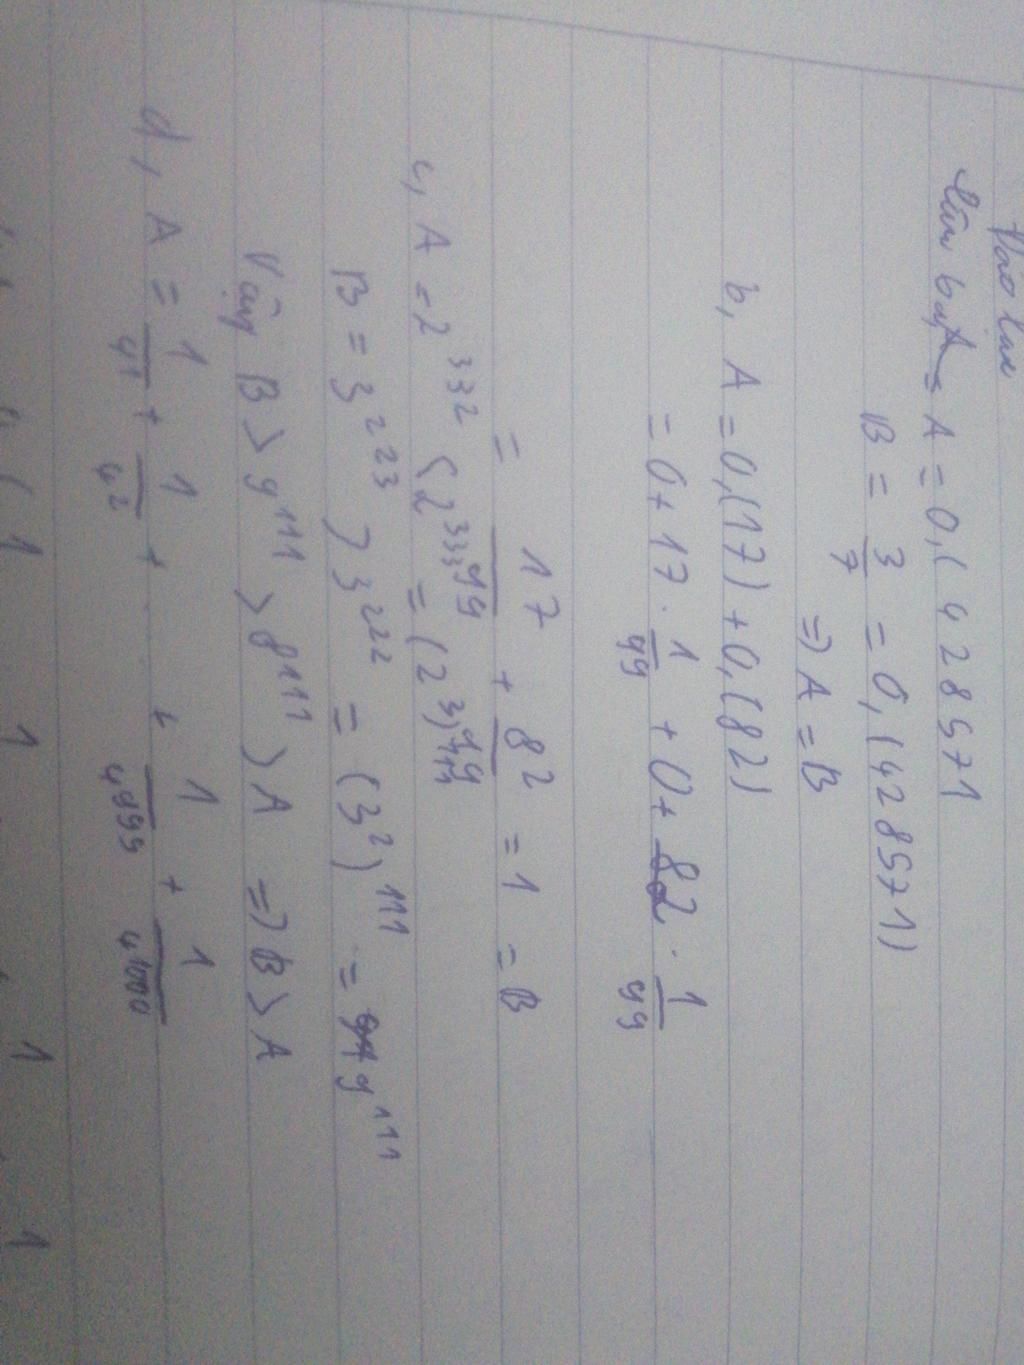 A = 0,(428571
B = 3/7 = 0,(428571)
=> A = B
b, A = 0,(17) + 0,(82)
= 0 + 17 . 1/99 + 0 + 82 . 1/99
= 17/99 + 82/99 = 1 = B
c, A = 2^332 < 2^333 = (2^3)^111
B = 3^223 > 3^222 = (3^2)^111 = 9^111
Vậy B > 9^111 > 8^111 > A => B > A
d, A = 1/41 + 1/42 + + 1/4999 + 1/4000